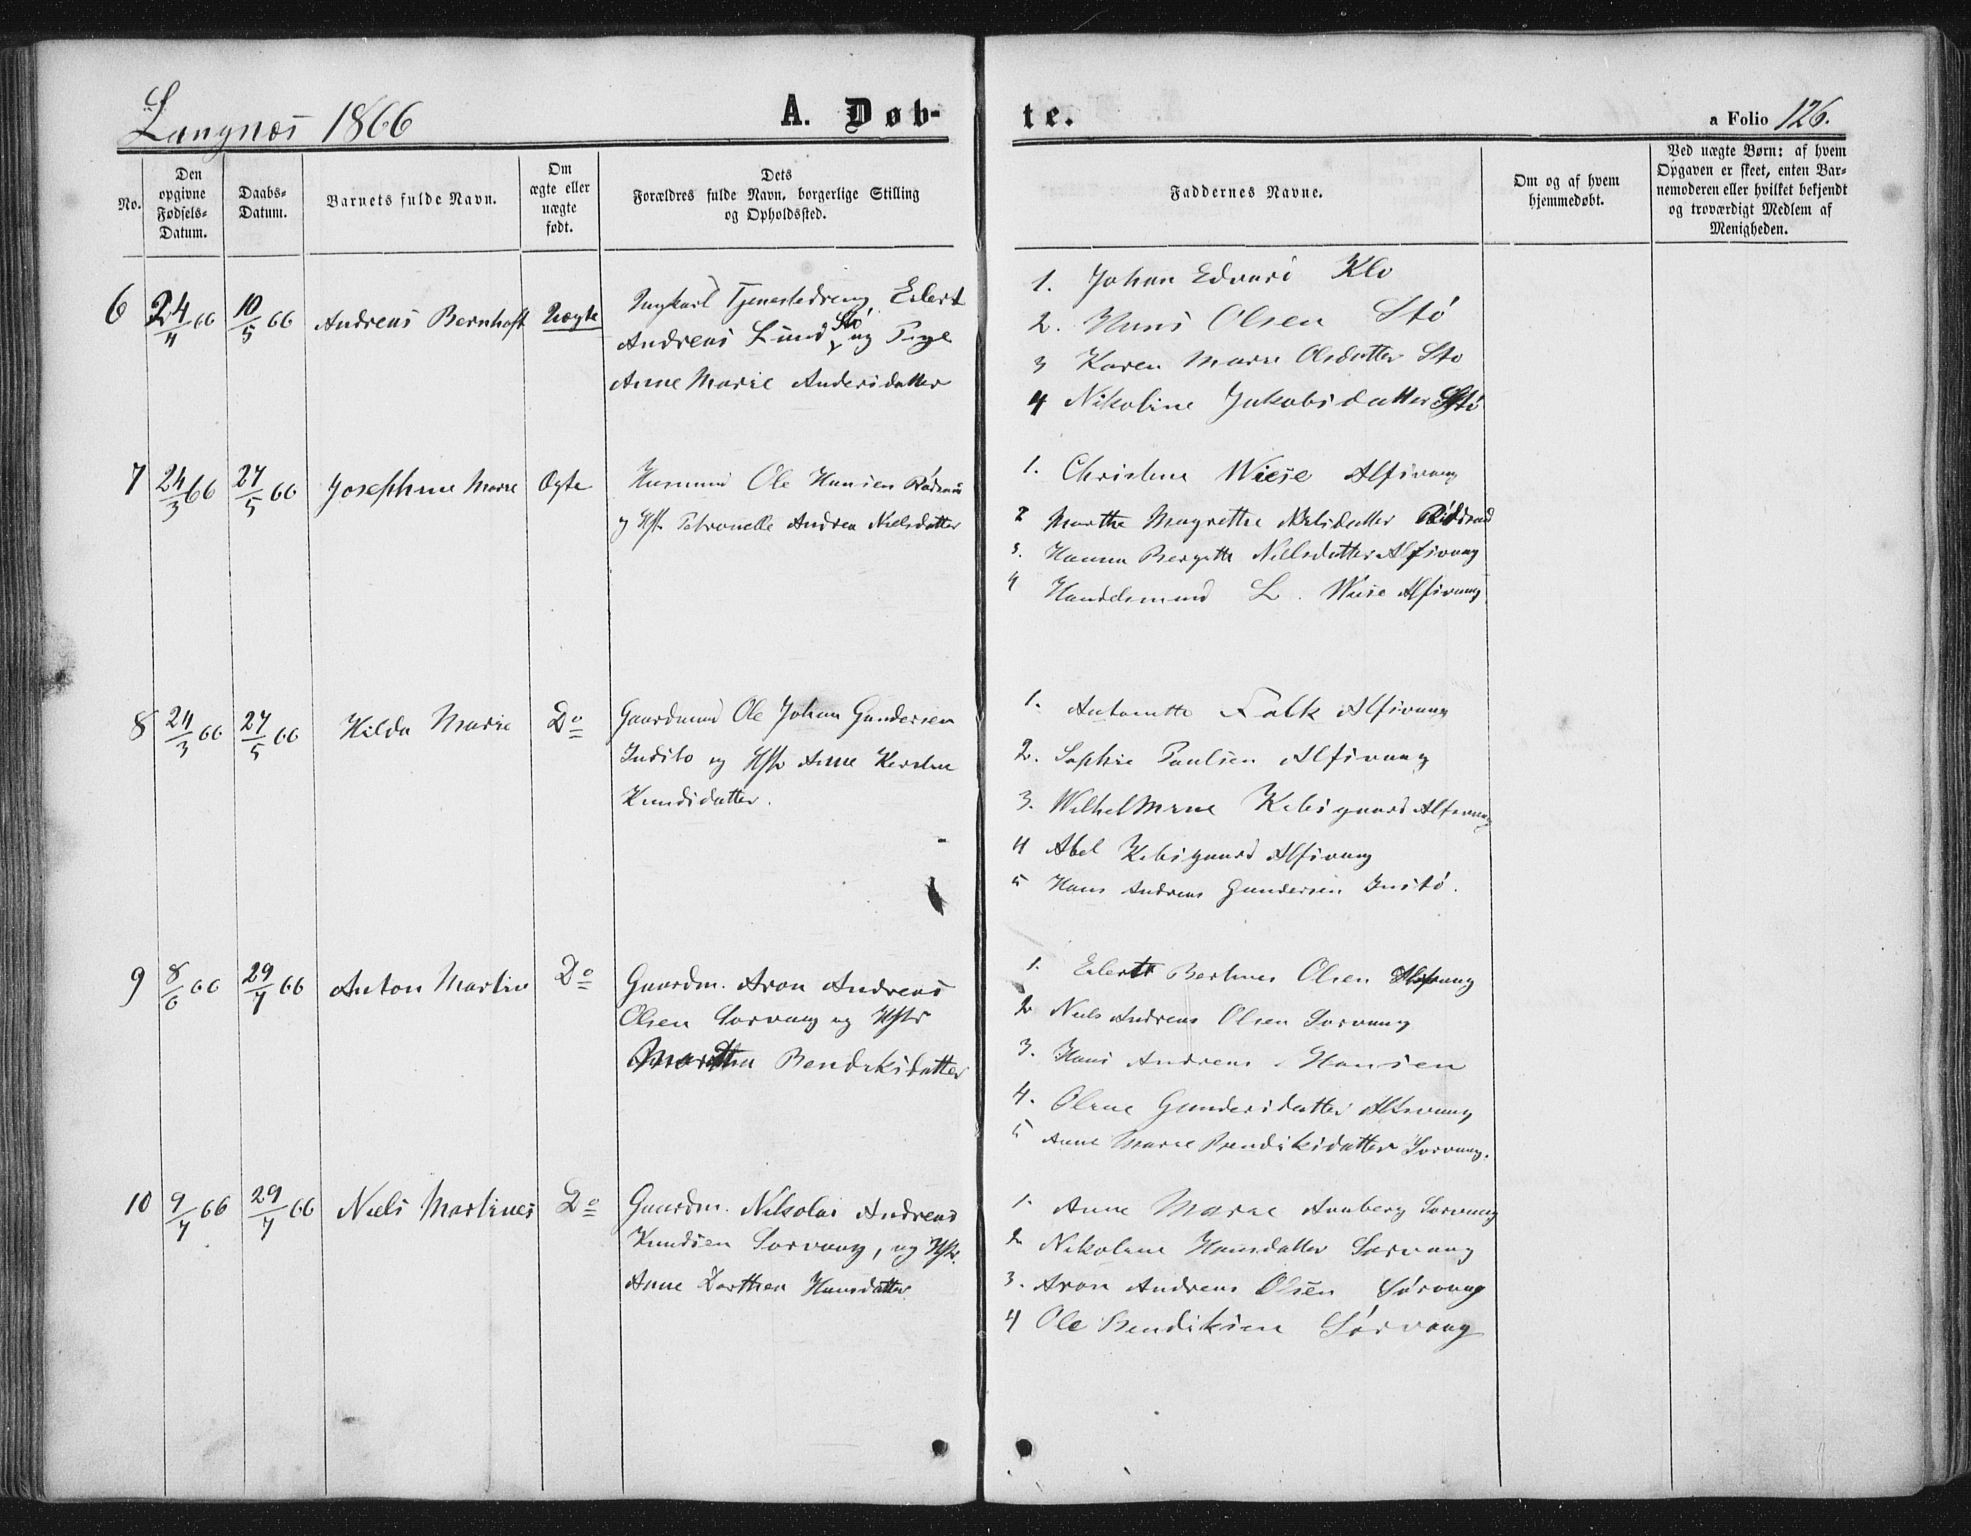 Langnæs 1866
A. Døb-
te.
a Folio 126.
No.
Den opgivne Fødsels-Datum.
Daabs-Datum.
Barnets fulde Navn.
Om ægte eller uægte født.
Dets Forældres fulde Navn, borgerlige Stilling og Opholdssted.
Faddernes Navne.
Om og af hvem hjemmedøbt.
Ved uægte Børn: af hvem Opgaven er skeet, enten Barnemoderen eller hvilket bekjendt og troværdigt Medlem af Menigheden.
6 24/4 66 10/5 66 Andreas Bernhoft Uægte
Ungkarl Tjenestedreng Eilert
Andreas Lund Stø og Pige
Anne Marie Andersdatter
1. Johan Edvard Klo
2. Hans Olsen Stø
3 Karen Marie Olsdatter Stø
4 Nikoline Jakobsdatter Stø
7 24/3 66 27/5 66 Josephine Marie Ægte
Husmand Ole Hansen
og Hst. Petronelle Andrea Nielsdatter
1. Christine Wiese Alfsvaag
2 Marthe Magrethe Nielsdatter
3. Hanna Bergitte Nielsdatter Alfsvaag
4 Handelsmand L. Wiise Alfsvaag
8 24/3 66 27/5 66 Hilda Marie Do
Gaardmand Ole Johan Gundersen
Indstø og Hst. Anne Kirstine
Knudsdatter.
1. Antonette Falk Alfsvaag
2. Sophie Paulsen Alfsvaag
3. Wilhelmine Alfsvaag
4 Abel Alfsvaag
5 Hans Andreas Gundersen Instø.
9 8/6 66 29/7 66 Anton Martin Do
Gaardm. Aron Andreas
Olsen Sørvaag og Hstr
Marthea Bendiksdatter
1. Eilert Berthines Olsen Alfsvaag
2 Niels Andreas Olsen Sorvaag
3. Hans Andreas Hansen
4. Oline Gundersdatter Alfsvaag
5 Anne Marie Bendiksdatter Sorvaag.
10 9/7 66 29/7 66 Niels Martines Do
Gaardm. Nikolai Andreas
Knudsen Sorvaag, og Hstr.
Anne Dorthea Hansdatter
1. Anne Marie Sorvaag
2 Nikoline Hansdatter Sorvaag
3. Aron Andreas Olsen Sørvaag
4 Ole Bendiksen Sørvaag